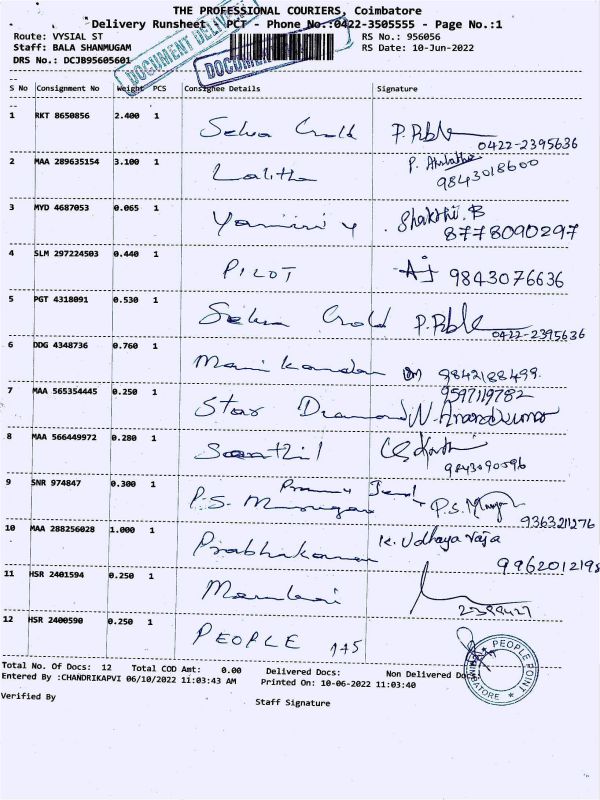 THE PROFESSIONAL COURIERS, Coimbatore
Delivery Runsheet - PCT - Phone No.:0422-3505555 - Page No.:1
Route: VYSIAL ST RS No.: 956056
Staff: BALA SHANMUGAM RS Date: 10-Jun-2022
DRS No.: DCJB95605601
DOCUMENT
S No Consignment No Weight PCS Consignee Details Signature
1 RKT 8650856 2.400 1 Selva Gold
0422-2395636
2 MAA 289635154 3.100 1 Lalitha P.
9843018600
3 MYD 4687053 0.065 1 Yamini Y Shakthi.B
8778090297
4 SLM 297224503 0.440 1 PILOT AJ 9843076636
5 PGT 4318091 0.530 1 Selva Gold
0422-2395636
6 DDG 4348736 0.760 1 Manikandan 9842188499
9597119782
7 MAA 565354445 0.250 1 Star Diamond N. Anandkumar
8 MAA 566449972 0.280 1 Senthil
9843090596
9 SNR 974847 0.300 1 P.S. Murugan P.S.
9363211276
10 MAA 288256028 1.000 1 Prabhakaran K. Udhaya raja
9962012198
11 HSR 2401594 0.250 1
2399427
12 HSR 2400590 0.250 1 PEOPLE 145
PEOPLE POINT
COIMBATORE
Total No. Of Docs: 12 Total COD Amt: 0.00 Delivered Docs: Non Delivered Docs:
Entered By :CHANDRIKAPVI 06/10/2022 11:03:43 AM Printed On: 10-06-2022 11:03:40
Verified By Staff Signature